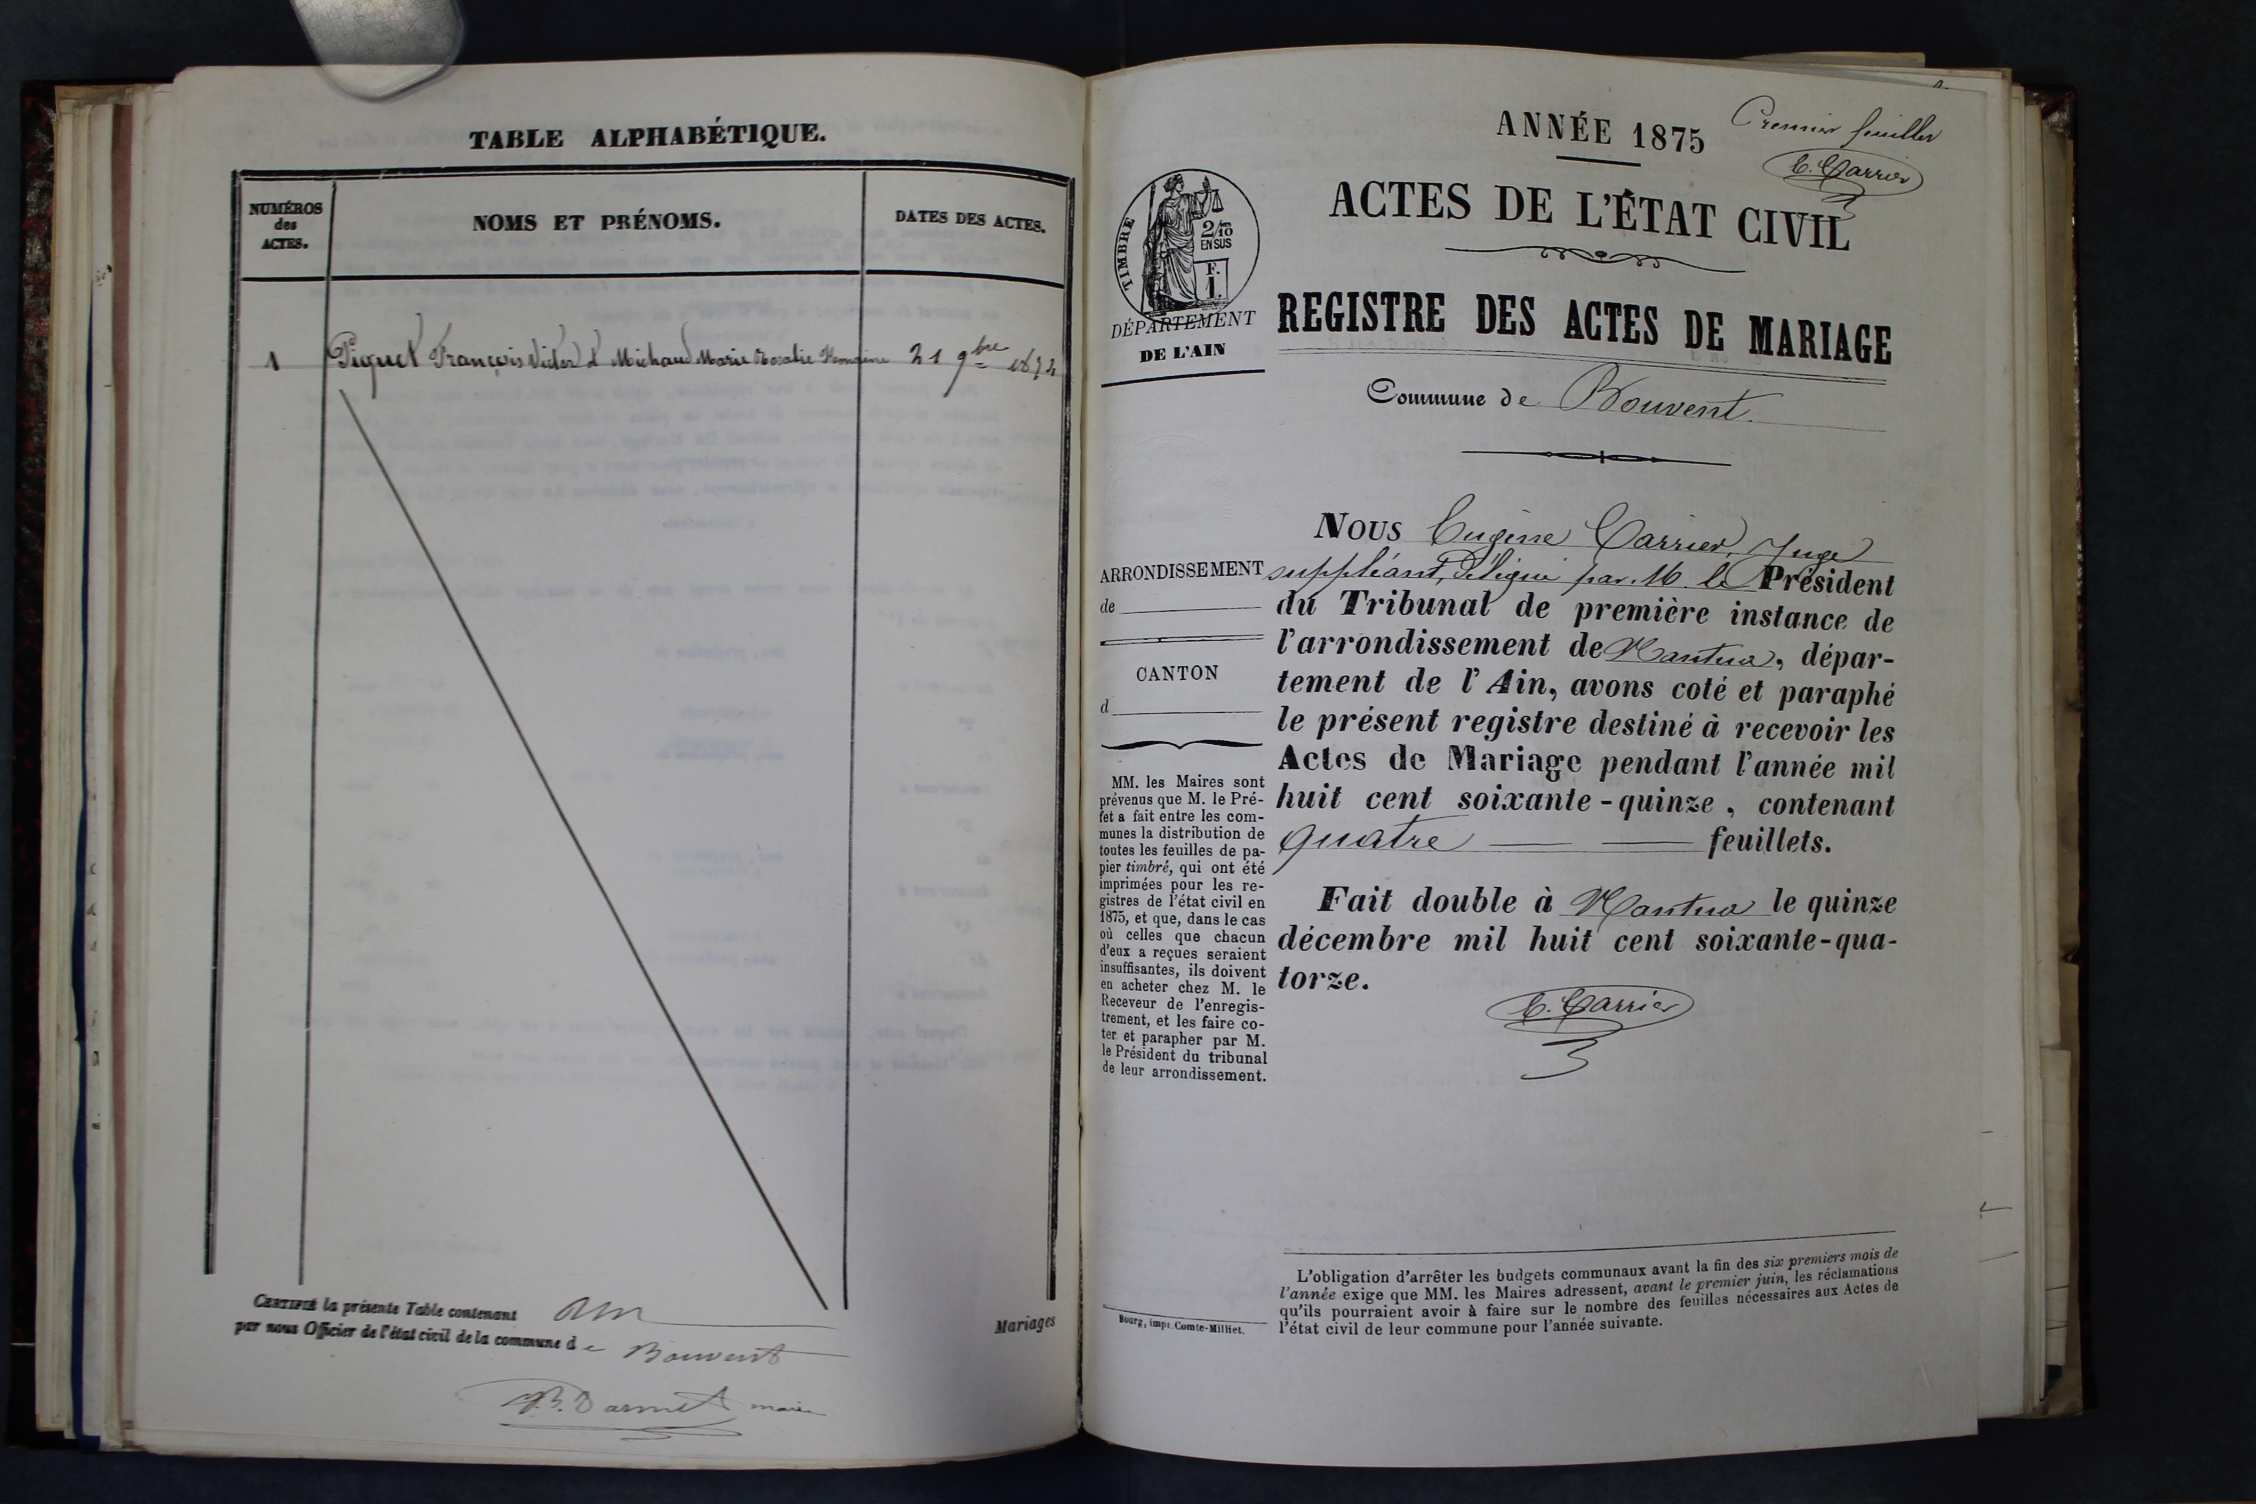 TABLE ALPHABÉTIQUE.
NUMÉROS
des
ACTES.
NOMS ET PRÉNOMS.
DATES DES ACTES.
1 Piquet François Victor & Michaud Marie Rosalie 21 9bre 1874
CERTIFIÉ la présente Table contenant un
par nous Officier de l'état civil de la commune de Bouvent
maire
Mariages
Premier feuillet
E. Carrier
ANNÉE 1875
ACTES DE L'ÉTAT CIVIL
TIMBRE
2/10
EN SUS
F.
1.
DÉPARTEMENT
DE L'AIN
REGISTRE DES ACTES DE MARIAGE
Commune de Bouvent.
ARRONDISSEMENT
de
CANTON
d
MM. les Maires sont
prévenus que M. le Pré-
fet a fait entre les com-
munes la distribution de
toutes les feuilles de pa-
pier timbré, qui ont été
imprimées pour les re-
gistres de l'état civil en
1875, et que, dans le cas
où celles que chacun
d'eux a reçues seraient
insuffisantes, ils doivent
en acheter chez M. le
Receveur de l'enregis-
trement, et les faire co-
ter et parapher par M.
le Président du tribunal
de leur arrondissement.
Bourg, impr. Comte-Milliet.
NOUS Eugène Carrier, Juge
suppléant, Délégué par M. le Président
du Tribunal de première instance de
l'arrondissement de Nantua, dépar-
tement de l'Ain, avons coté et paraphé
le présent registre destiné à recevoir les
Actes de Mariage pendant l'année mil
huit cent soixante-quinze, contenant
quatre feuillets.
Fait double à Nantua le quinze
décembre mil huit cent soixante-qua-
torze.
E. Carrier
L'obligation d'arrêter les budgets communaux avant la fin des six premiers mois de
l'année exige que MM. les Maires adressent, avant le premier juin, les réclamations
qu'ils pourraient avoir à faire sur le nombre des feuilles nécessaires aux Actes de
l'état civil de leur commune pour l'année suivante.